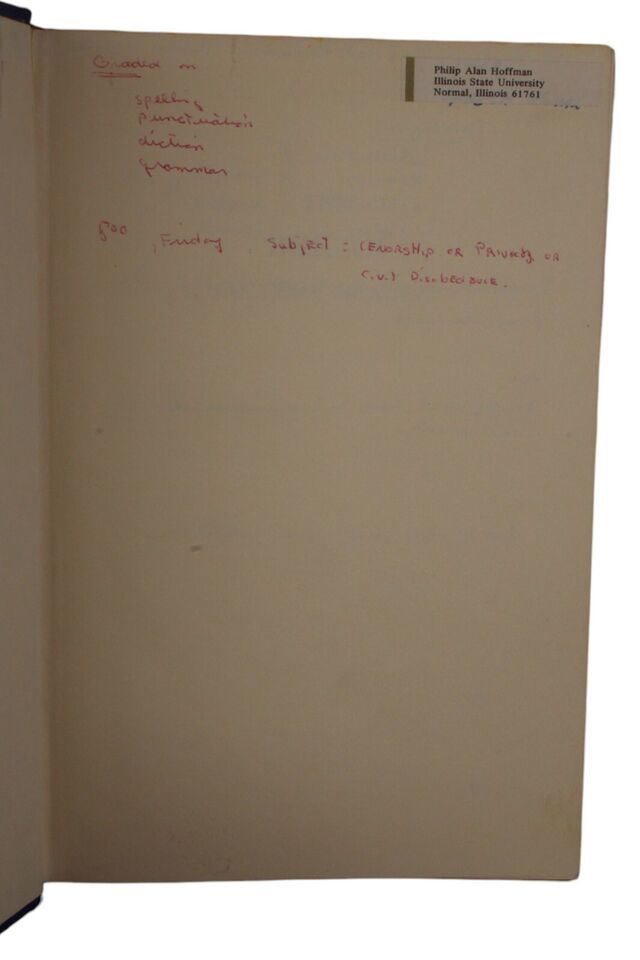 Philip Alan Hoffman
Illinois State University
Normal, Illinois 61761
Graded on
spelling
punctuation
diction
grammar
500 , Friday Subject : CENORSHIP OR PRIVACY OR
Civil DisobEDIENCE.